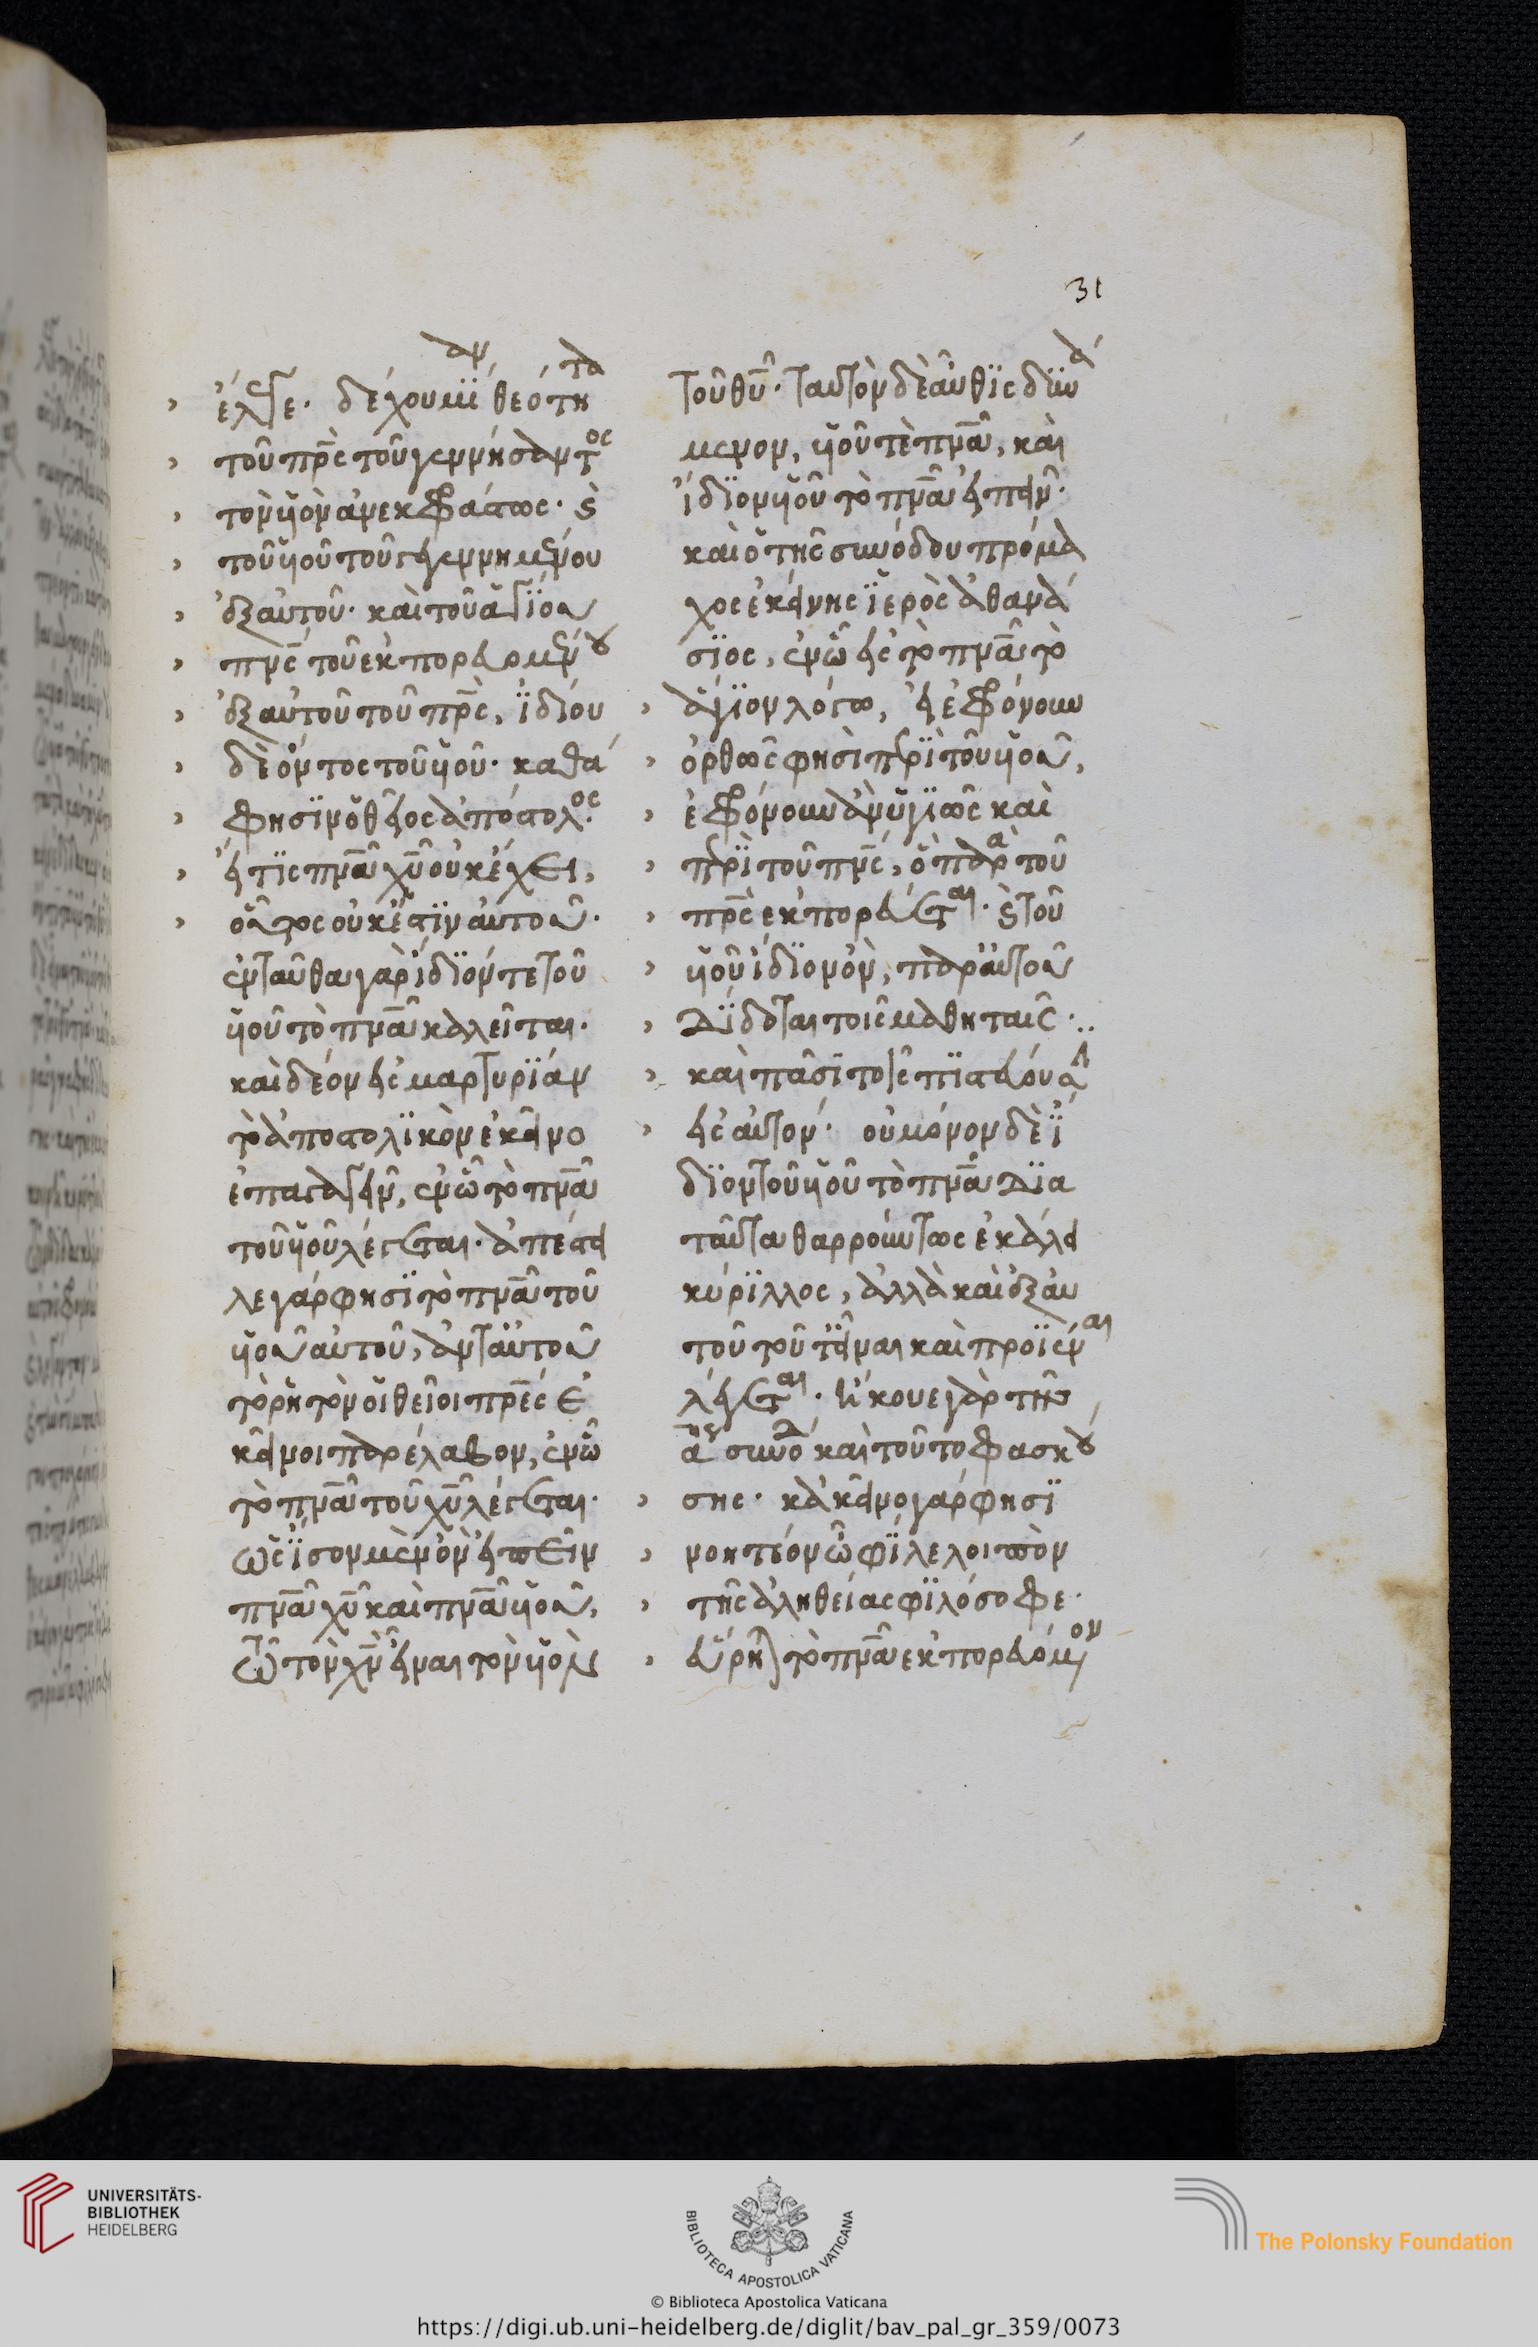 31
ἔλεγε· δέχου μίαν θεότητα
τοῦ πρς τοῦ γεννήσαντος
τὸν υἱὸν ἀνεκφράστως· καὶ
τοῦ υἱοῦ τοῦ γεγεννημένου
ἐξ αὐτοῦ· καὶ τοῦ ἁγίου
πνς τοῦ ἐκπορευομένου
ἐξ αὐτοῦ τοῦ πρς, ἰδίου
δὲ ὄντος τοῦ υἱοῦ· καθά
φησιν ὁ θεῖος ἀπόστολος·
εἴ τις πνα χυ οὐκ ἔχει,
οὗτος οὐκ ἔστιν αὐτοῦ·
ἐνταῦθα γὰρ ἴδιόν τε τοῦ
υἱοῦ τὸ πνα καλεῖται·
καὶ δέον εἰς μαρτυρίαν
τὸ ἀποστολικὸν ἐκεῖνο
ἐπαγαγεῖν, ἐν ᾧ τὸ πνα
τοῦ υἱοῦ λέγεται· ἀπέστει
λε γάρ φησι τὸ πνα τοῦ
υἱοῦ αὐτοῦ, ἀντ' αὐτοῦ
τὸ ῥητὸν οἱ θεῖοι πρες ἐ
κεῖνοι παρέλαβον, ἐν ᾧ
τὸ πνα τοῦ χυ λέγεται·
ὡς ἴσον μὲν ὂν εἰπεῖν
πνα χυ καὶ πνα υἱοῦ,
τῷ τὸν χν εἶναι τὸν υἱὸν
τοῦ θυ· ταυτὸν δὲ αὖθις δυνά
μενον, υἱοῦ τε πνα, καὶ
ἴδιον υἱοῦ τὸ πνα εἰπεῖν·
καὶ ὁ τῆς συνόδου πρόμα
χος ἐκείνης ἱερὸς ἀθανά
σιος, ἐν ᾧ εἰς τὸ πνα τὸ
ἅγιον λόγω, εἰ ἐφρόνουν
ὀρθῶς φησὶ περὶ τοῦ υἱοῦ,
ἐφρόνουν ἂν ὑγιῶς καὶ
περὶ τοῦ πνς, ὃ παρὰ τοῦ
πρς ἐκπορεύεται· καὶ τοῦ
υἱοῦ ἴδιον ὂν, παρ' αὐτοῦ
δίδοται τοῖς μαθηταῖς·
καὶ πᾶσι τοῖς πιστεύουσιν
εἰς αὐτόν· οὐ μόνον δὲ ἴ
διον τοῦ υἱοῦ τὸ πνα δια
ταῦτα θαρρούντως ἐκάλει
κύριλλος, ἀλλὰ καὶ ἐξ αὐ
τοῦ τοῦτ' εἶναι καὶ προϊέναι
λέγεται· ἤκουε γὰρ τῆς
αης συνόδ καὶ τοῦτο φασκού
σης· κἀκεῖνο γάρ φησι
νοητέον ὦ φίλε λοιπὸν
τῆς ἀληθείας φιλόσοφε·
εἴρηται τὸ πνα ἐκπορευόμενον
UNIVERSITÄTS-
BIBLIOTHEK
HEIDELBERG
BIBLIOTECA APOSTOLICA VATICANA
The Polonsky Foundation
© Biblioteca Apostolica Vaticana
https://digi.ub.uni-heidelberg.de/diglit/bav_pal_gr_359/0073